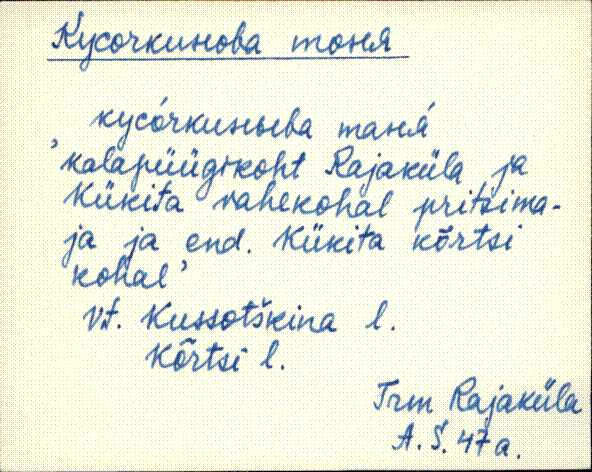 Кусочкинова тоня
кусо́чкинъва таня́
'kalapüügikoht Rajaküla ja
Kükita vahekohal pritsima-
ja ja end. Kükita kõrtsi
kohal'
Vt. Kussotškina l.
Kõrtsi l.
Trm Rajaküla
A. Š. 47 a.